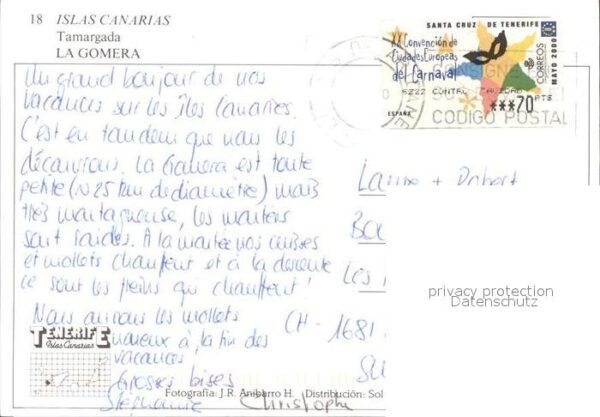 18 ISLAS CANARIAS
Tamargada
LA GOMERA
Un grand bonjour de nos
vacances sur les îles Canaries.
C'est en tandem que nous les
découvrons. La Gomera est toute
petite (~25 km de diamètre) mais
très montagneuse, les montées
sont raides. A la montée nos cuisses
et mollets chauffent et à la descente
ce sont les freins qui chauffent!
Nous aurons les mollets
nerveux à la fin des
vacances
Grosses bises
Stéphanie Christophe
TENERIFE
Islas Canarias
Fotografía: J.R. Anibarro H. Distribución: Sol
SANTA CRUZ DE TENERIFE
XX Convención de
Ciudades Europeas
del Carnaval
CORREOS
MAYO 2000
***70 PTS
ESPAÑA
CONSIGNE
CODIGO POSTAL
Les
CH - 1681
privacy protection
Datenschutz